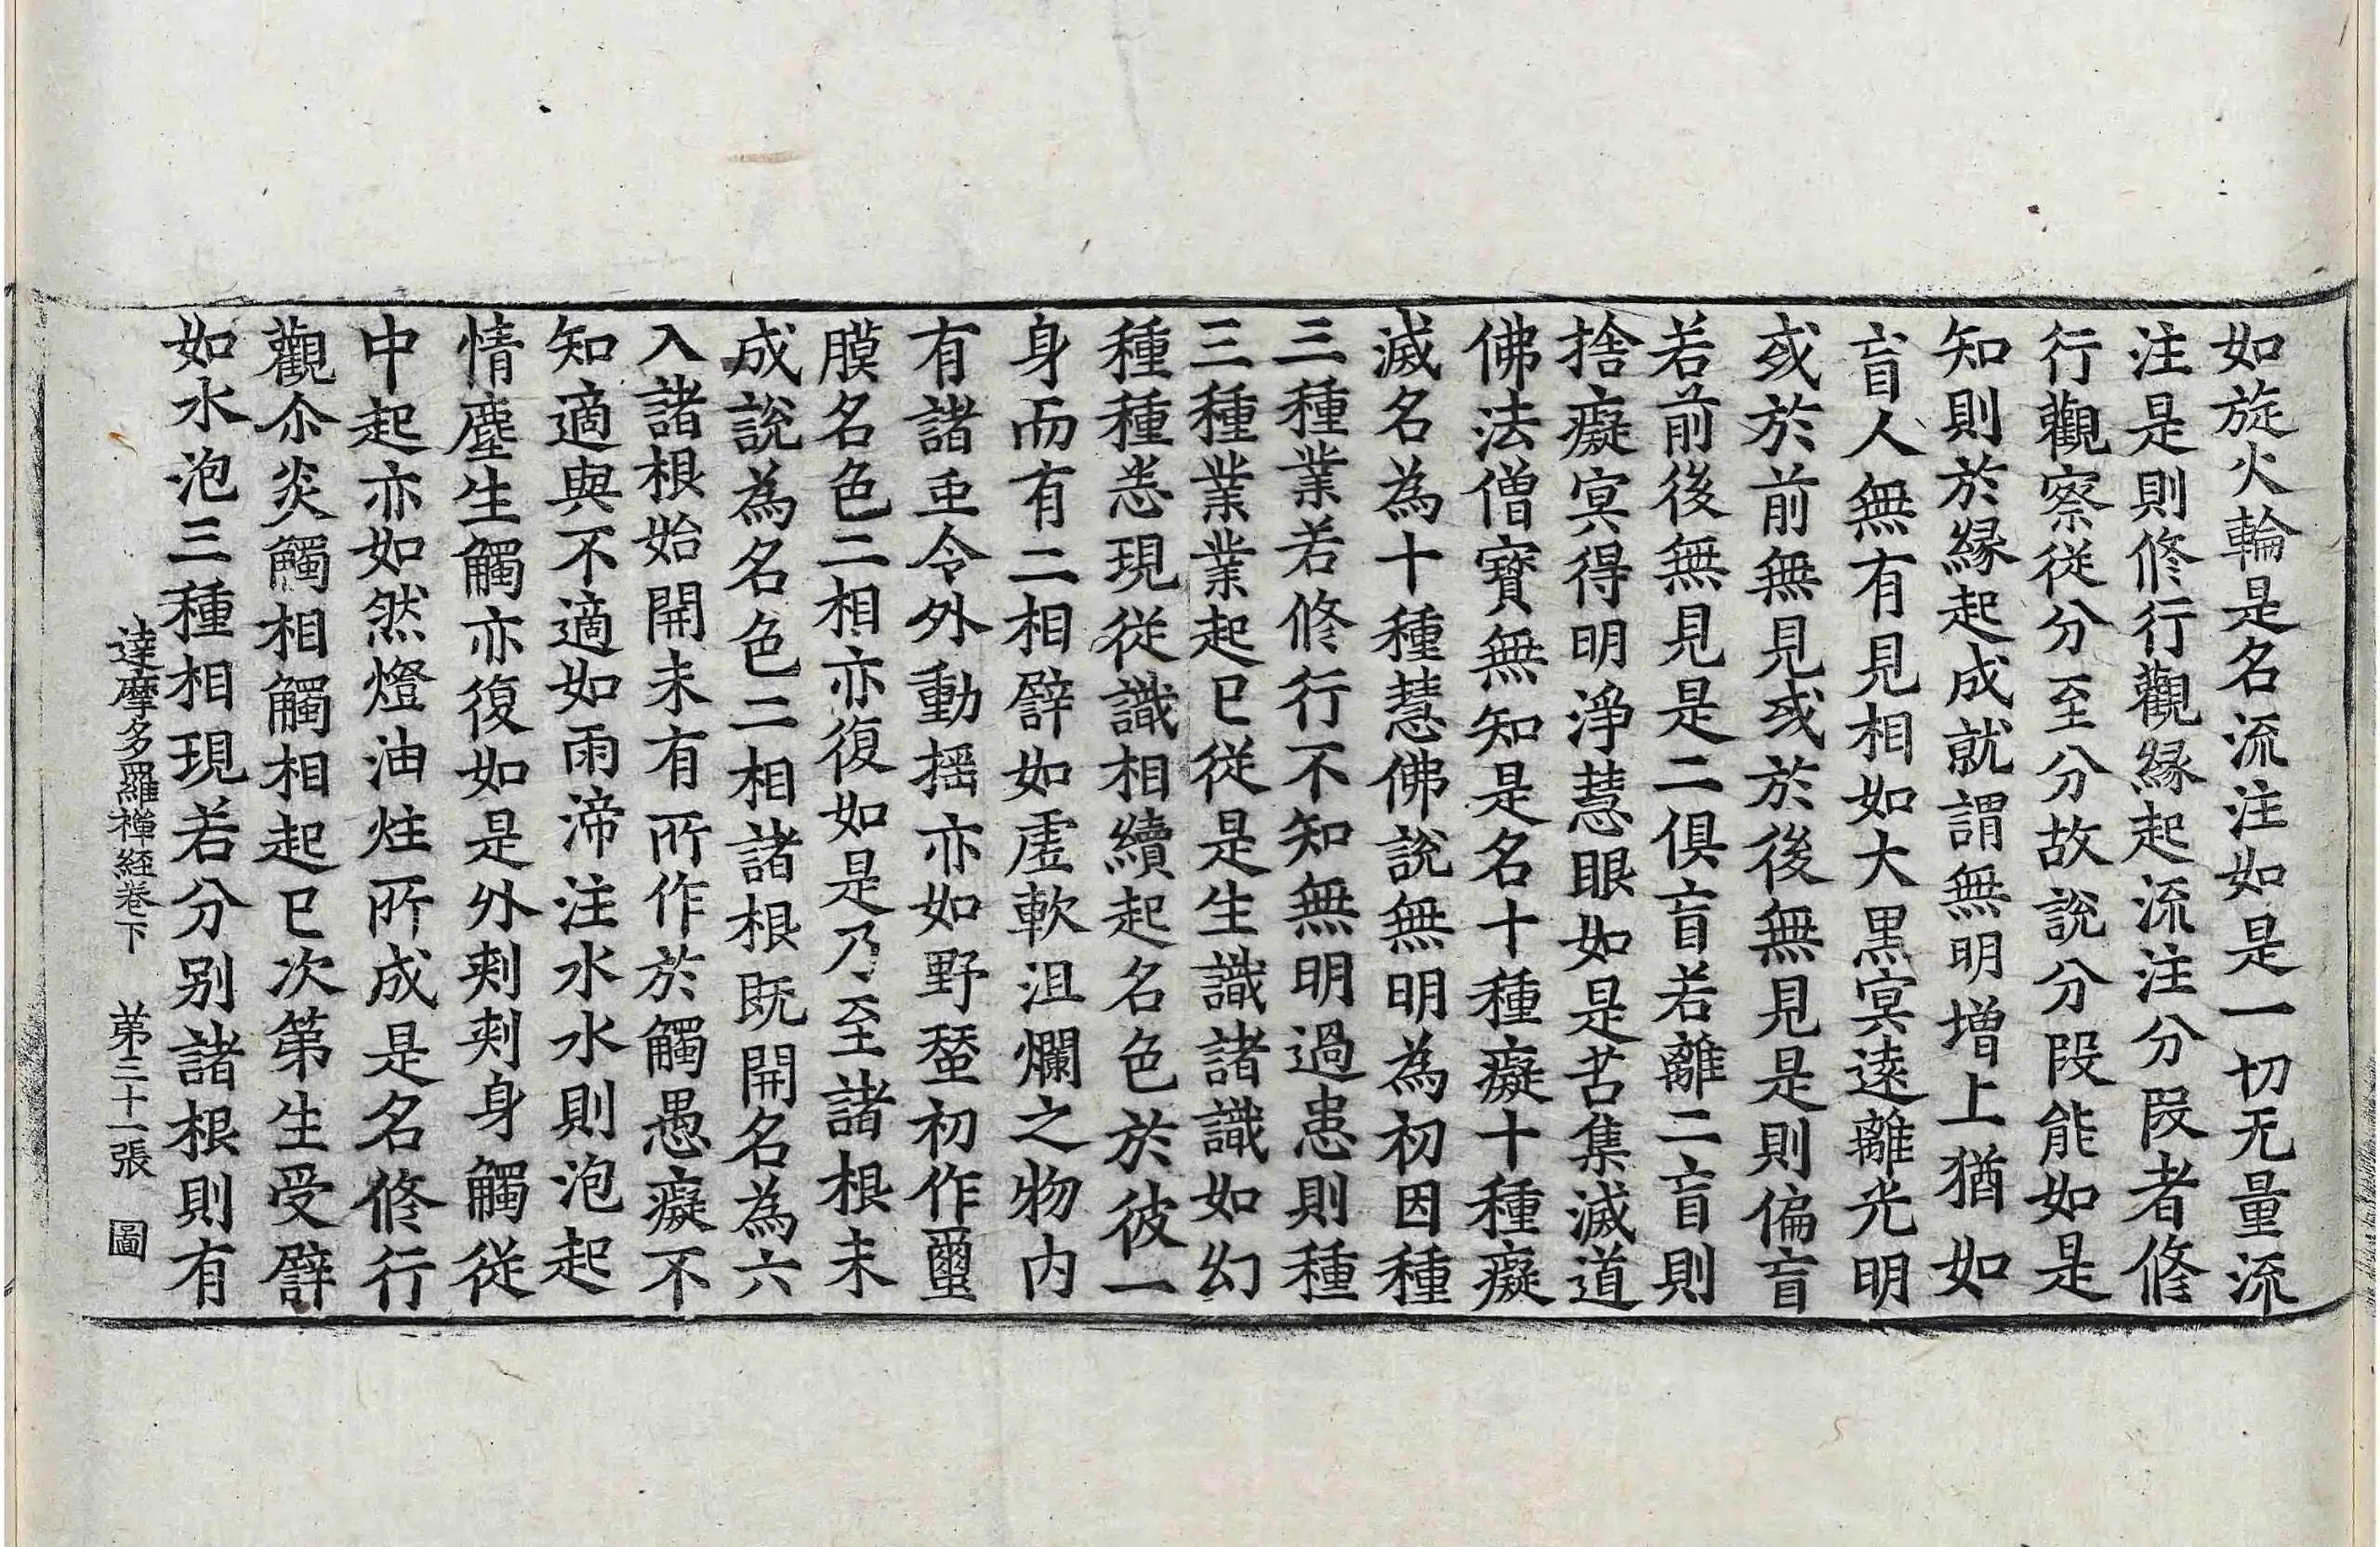 如旋火輪是名流注如是一切无量流
注是則修行觀緣起流注分段者修
行觀察從分至分故說分段能如是
知則於緣起成就謂無明增上猶如
盲人無有見相如大黑冥遠離光明
或於前無見或於後無見是則偏盲
若前後無見是二俱盲若離二盲則
捨癡冥得明淨慧眼如是苦集滅道
佛法僧寶無知是名十種癡十種癡
滅名為十種慧佛說無明為初因種
三種業若修行不知無明過患則種
三種業業起已從是生識諸識如幻
種種恙現從識相續起名色於彼一
身而有二相譬如虛軟沮爛之物內
有諸虫令外動搖亦如野蚕初作蠒
膜名色二相亦復如是乃至諸根未
成說為名色二相諸根既開名為六
入諸根始開未有所作於觸愚癡不
知適與不適如雨渧注水水則泡起
情塵生觸亦復如是外刾刾身觸從
中起亦如然燈油炷所成是名修行
觀尒炎觸相觸相起已次第生受譬
如水泡三種相現若分別諸根則有
達摩多羅禪経卷下 第三十一張 圖